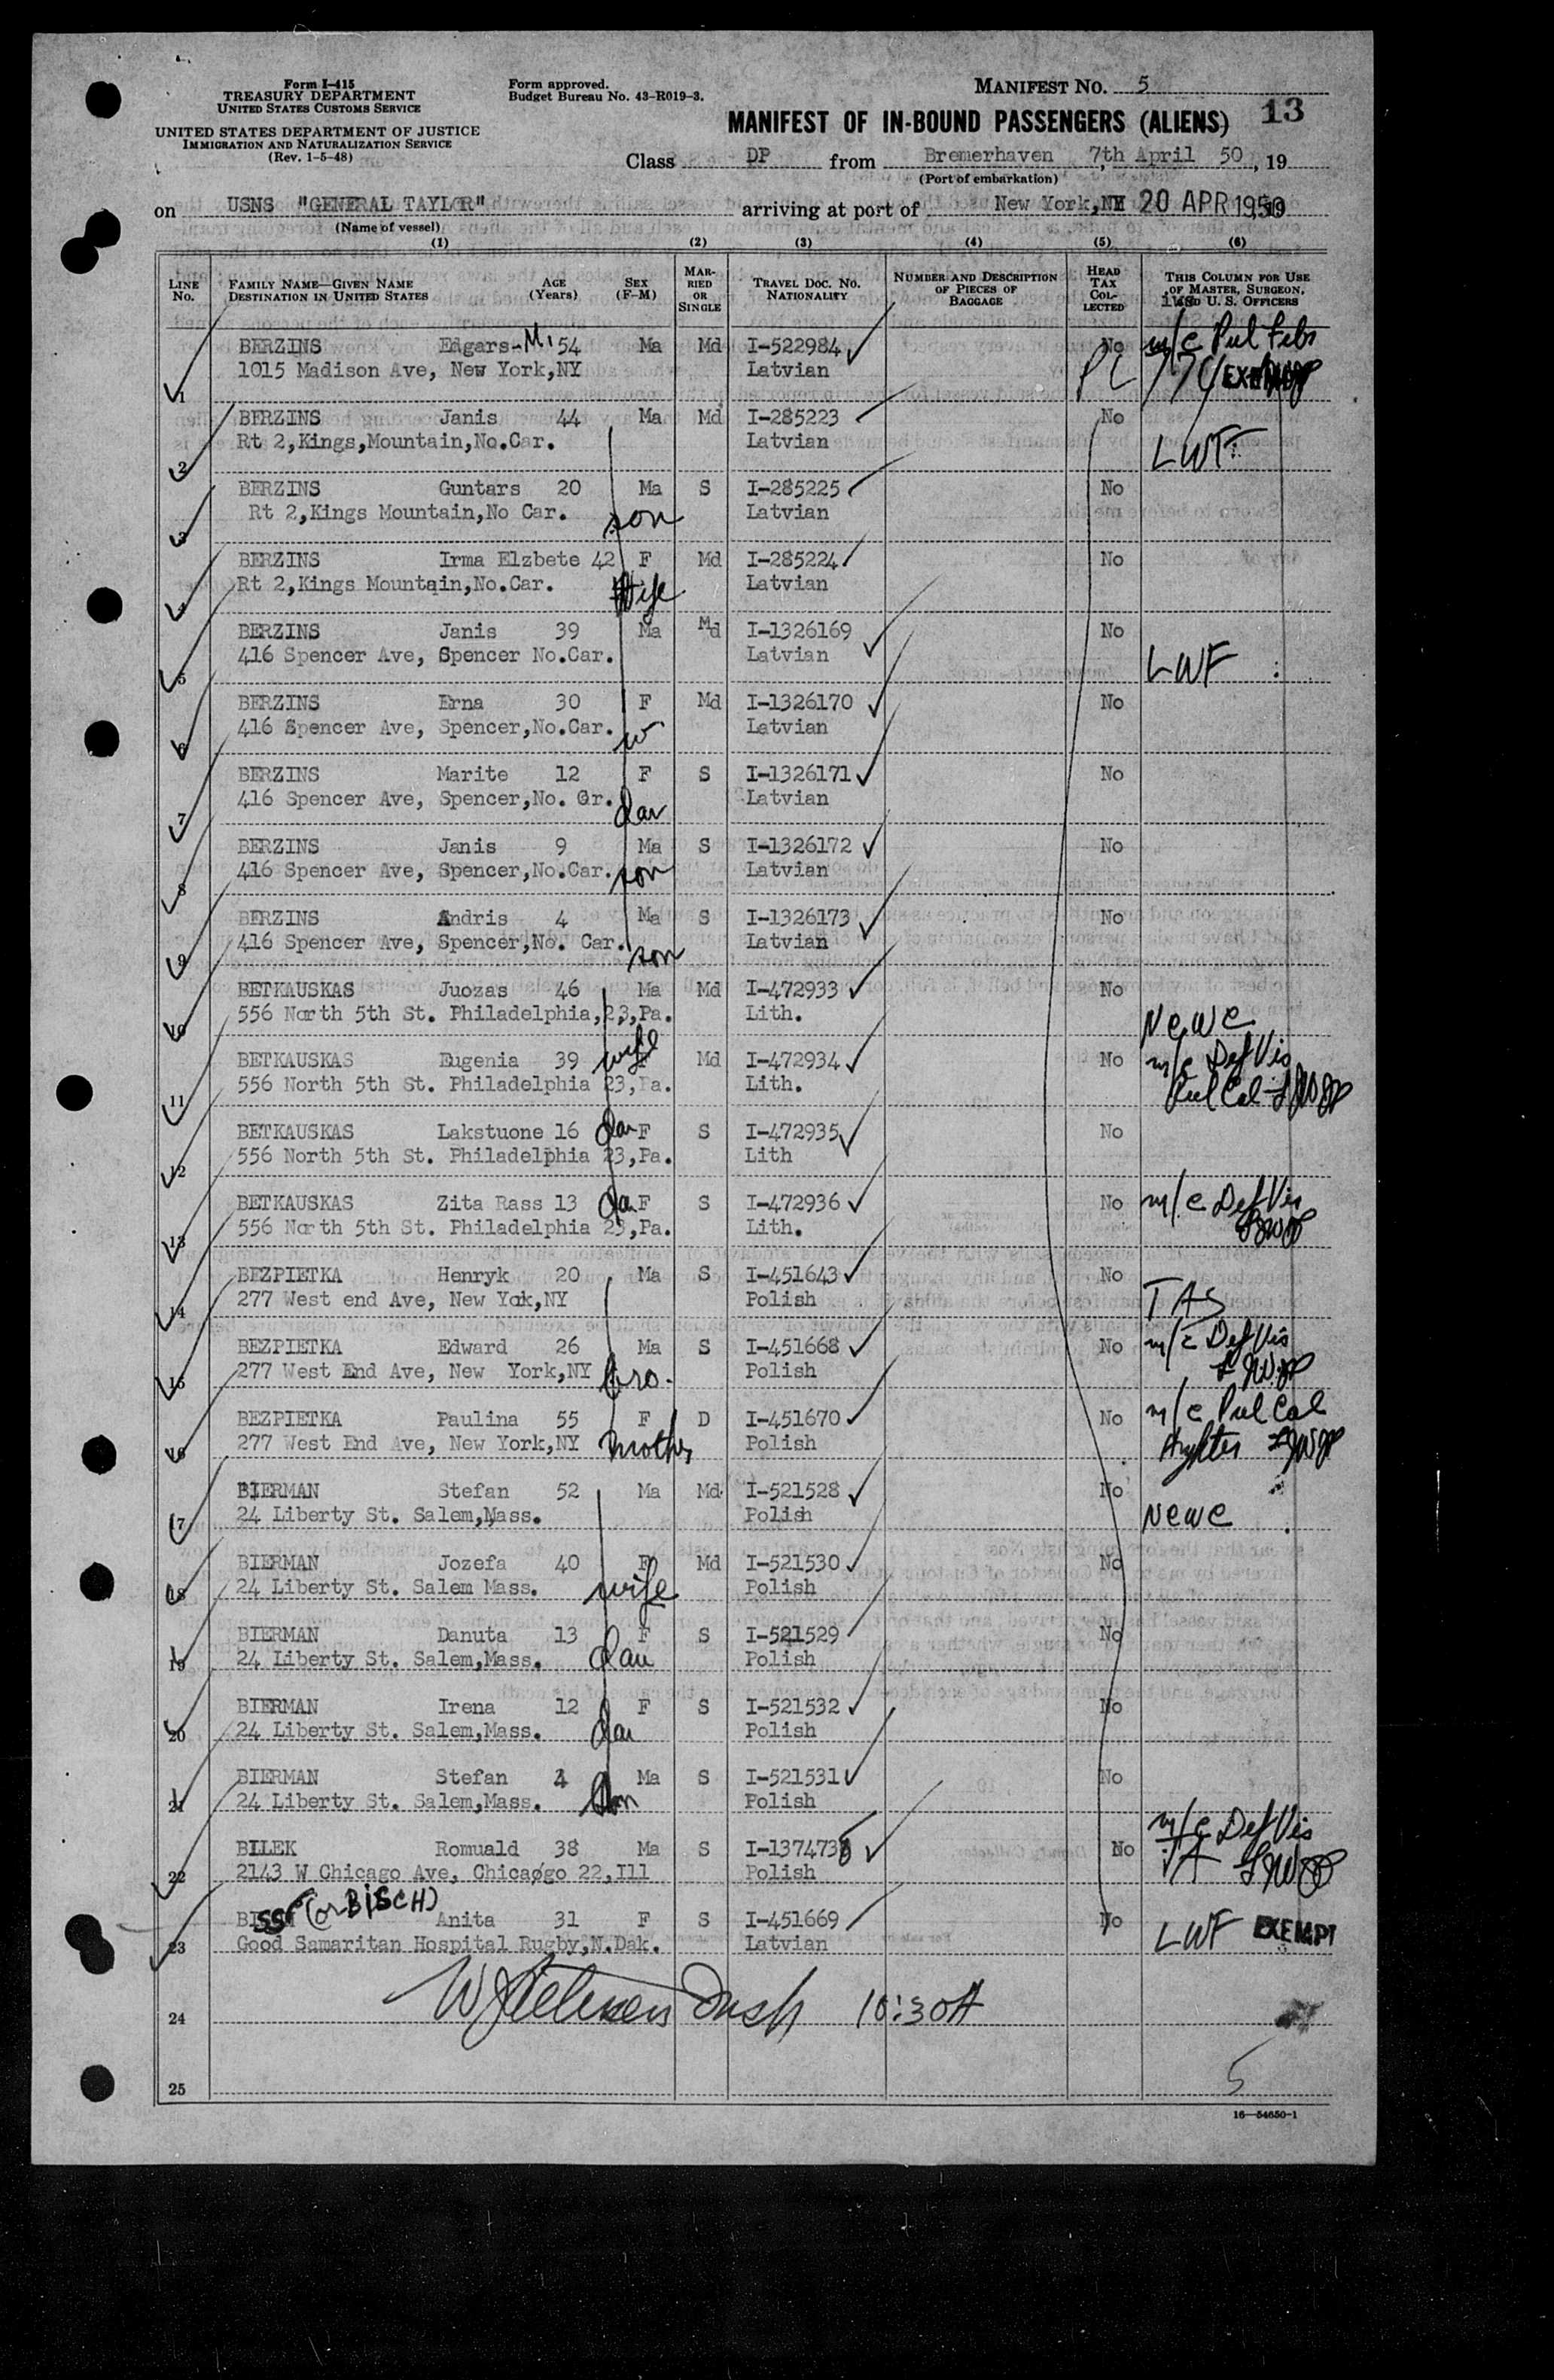 Form I-415
TREASURY DEPARTMENT
UNITED STATES CUSTOMS SERVICE
UNITED STATES DEPARTMENT OF JUSTICE
IMMIGRATION AND NATURALIZATION SERVICE
(Rev. 1-5-48)
Form approved.
Budget Bureau No. 43-R019-3.
MANIFEST NO. 5
13
MANIFEST OF IN-BOUND PASSENGERS (ALIENS)
Class DP from Bremerhaven, 7th April 50, 19
(Port of embarkation)
on USNS "GENERAL TAYLOR" arriving at port of New York, NY 20 APR 1950
(Name of vessel)
(1) (2) (3) (4) (5) (6)
LINE No. FAMILY NAME—GIVEN NAME DESTINATION IN UNITED STATES AGE (Years) SEX (F-M) MARRIED OR SINGLE TRAVEL DOC. NO. NATIONALITY NUMBER AND DESCRIPTION OF PIECES OF BAGGAGE HEAD TAX COLLECTED THIS COLUMN FOR USE OF MASTER, SURGEON, AND U. S. OFFICERS
1 BERZINS Edgars-M. 54 Ma Md I-522984 No m/c Pul Febs
1015 Madison Ave, New York,NY Latvian PC EXEMPT
2 BERZINS Janis 44 Ma Md I-285223 No
Rt 2,Kings,Mountain,No.Car. Latvian LWF
3 BERZINS Guntars 20 Ma S I-285225 No
Rt 2,Kings Mountain,No Car. son Latvian
4 BERZINS Irma Elzbete 42 F Md I-285224 No
Rt 2,Kings Mountain,No.Car. Wife Latvian
5 BERZINS Janis 39 Ma Md I-1326169 No
416 Spencer Ave, Spencer No.Car. Latvian LWF
6 BERZINS Erna 30 F Md I-1326170 No
416 Spencer Ave, Spencer,No.Car. w Latvian
7 BERZINS Marite 12 F S I-1326171 No
416 Spencer Ave, Spencer,No. Gr. dau Latvian
8 BERZINS Janis 9 Ma S I-1326172 No
416 Spencer Ave, Spencer,No.Car. son Latvian
9 BERZINS Andris 4 Ma S I-1326173 No
416 Spencer Ave, Spencer,No. Car. son Latvian
10 BETKAUSKAS Juozas 46 Ma Md I-472933 No
556 North 5th St. Philadelphia,23,Pa. Lith. NCWC
11 BETKAUSKAS Eugenia 39 wife F Md I-472934 No m/c Def Vis
556 North 5th St. Philadelphia 23,Pa. Lith. Pul Cal
12 BETKAUSKAS Lakstuone 16 dau F S I-472935 No
556 North 5th St. Philadelphia 23,Pa. Lith
13 BETKAUSKAS Zita Rass 13 da F S I-472936 No m/c Def Vis
556 North 5th St. Philadelphia 23,Pa. Lith.
14 BEZPIETKA Henryk 20 Ma S I-451643 No
277 West end Ave, New Yok,NY Polish TAS
15 BEZPIETKA Edward 26 Ma S I-451668 No m/c Def Vis
277 West End Ave, New York,NY bro. Polish
16 BEZPIETKA Paulina 55 F D I-451670 No m/c Pul Cal
277 West End Ave, New York,NY mother Polish
17 BIERMAN Stefan 52 Ma Md I-521528 No
24 Liberty St. Salem,Mass. Polish NCWC
18 BIERMAN Jozefa 40 F Md I-521530 No
24 Liberty St. Salem Mass. wife Polish
19 BIERMAN Danuta 13 F S I-521529 No
24 Liberty St. Salem,Mass. dau Polish
20 BIERMAN Irena 12 F S I-521532 No
24 Liberty St. Salem,Mass. dau Polish
21 BIERMAN Stefan Ma S I-521531 No
24 Liberty St. Salem,Mass. son Polish
22 BILEK Romuald 38 Ma S No m/c Def Vis
2143 W Chicago Ave, Chicaogo 22,Ill Polish
23 BISS (or BISCH) Anita 31 F S I-451669 No LWF EXEMPT
Good Samaritan Hospital Rugby,N.Dak. Latvian
24 10:30A
25 5
16—54650-1